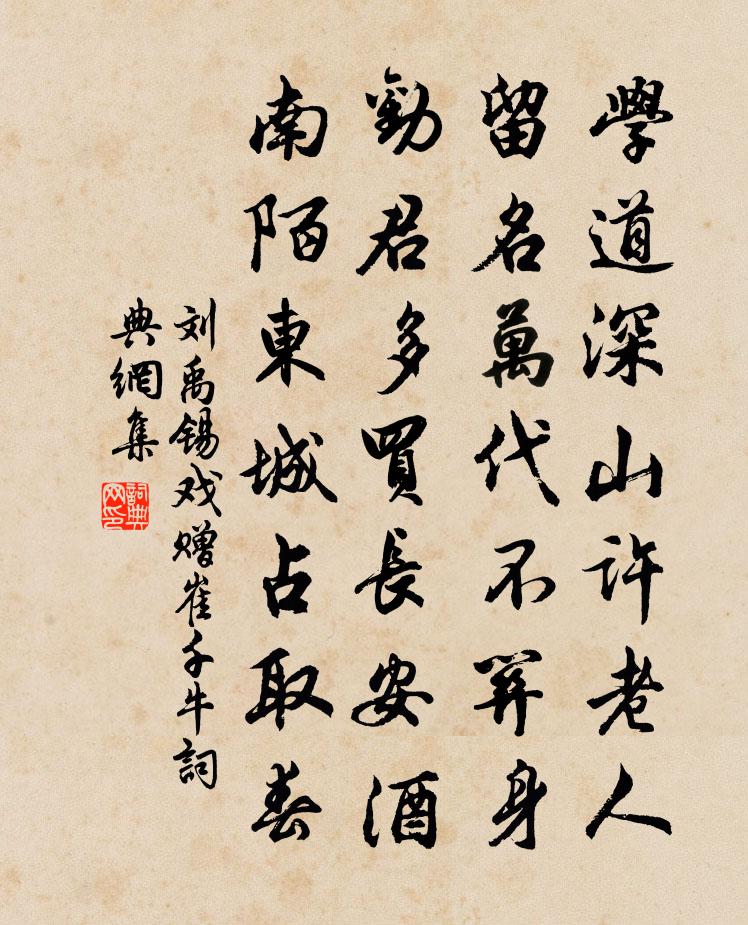 學道深山許老人
留名萬代不筭身
勸君多買長安酒
南陌東城占取春
刘禹锡戏赠崔千牛詞
典網集
詞典网印